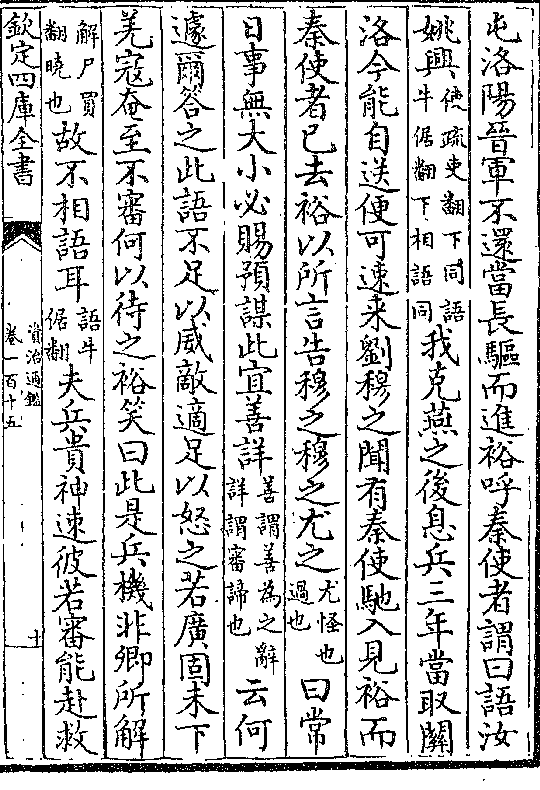 屯洛陽晉軍不還當長驅而進裕呼秦使者謂曰語汝
姚興使疏吏翻下同語牛倨翻下相語同我克燕之後息兵三年當取關
洛今能自送便可速來劉穆之聞有秦使馳入見裕而
秦使者已去裕以所言告穆之穆之尤之尤怪也過也曰常
日事無大小必賜預謀此宜善詳善謂善為之辭詳謂審諦也云何
遽爾答之此語不足以威敵適足以怒之若廣固未下
羌寇奄至不審何以待之裕笑曰此是兵機非卿所解
解尸買翻曉也故不相語耳語牛倨翻夫兵貴神速彼若審能赴救
欽定四庫全書
資治通鑑
卷一百十五
十